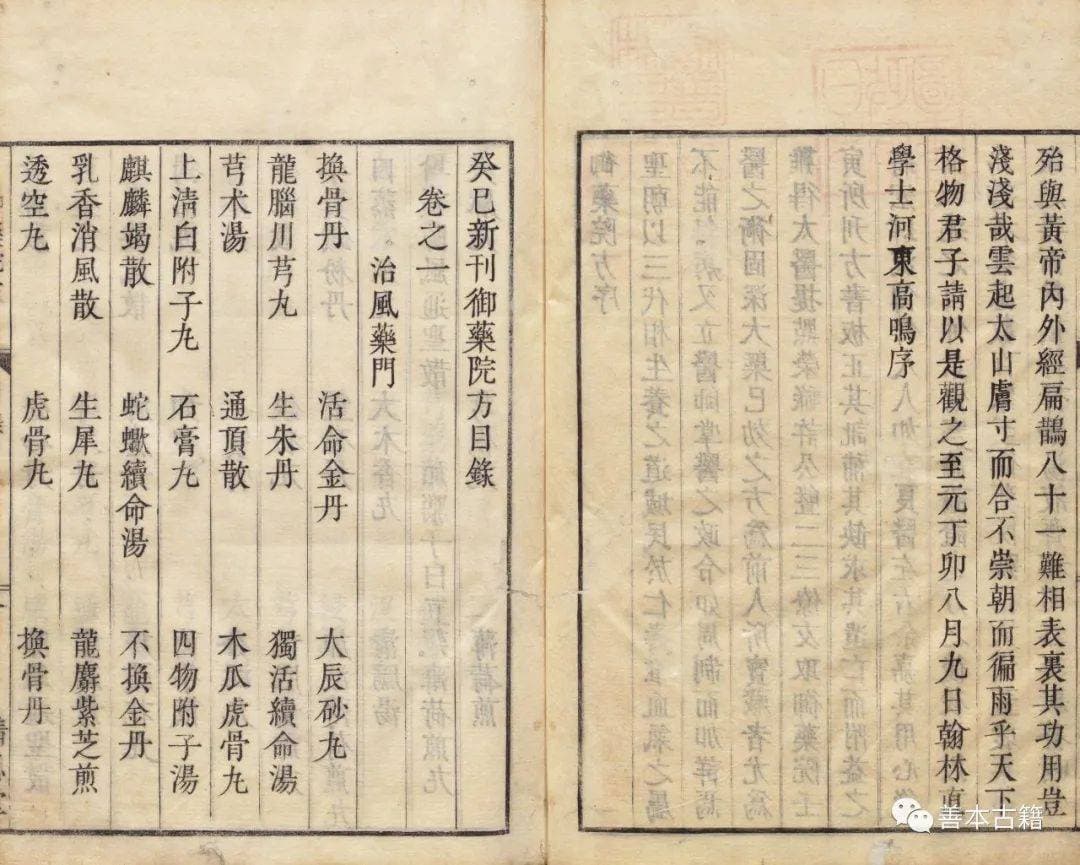 殆與黃帝內外經扁鵲八十一難相表裏其功用豈
淺淺哉雲起太山膚寸而合不崇朝而徧雨乎天下
格物君子請以是觀之至元丁卯八月九日翰林直
學士河東高鳴序
癸巳新刊御藥院方目錄
卷之一
治風藥門
換骨丹 活命金丹 大辰砂丸
龍腦川芎丸 生朱丹 獨活續命湯
芎术湯 通頂散 木瓜虎骨丸
上清白附子丸 石膏丸 四物附子湯
麒麟竭散 蛇蠍續命湯 不換金丹
乳香消風散 生犀丸 龍麝紫芝煎
透空丸 虎骨丸 換骨丹
善本古籍